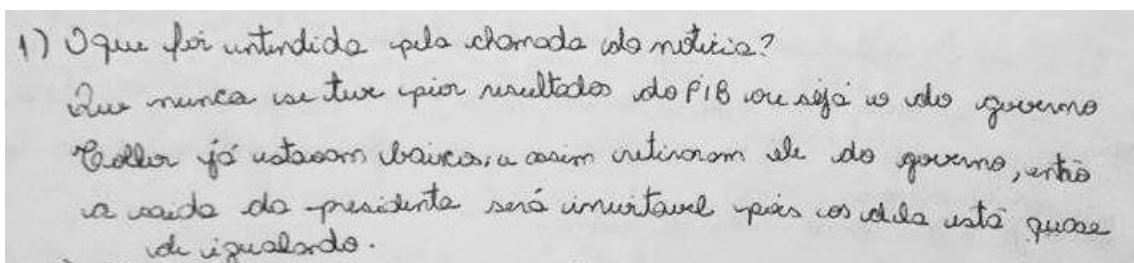 1) O que foi entendido pela chamada da notícia?
Que nunca se teve pior resultados do PIB ou seja o do governo
Collor já estavam baixos, e assim retiraram ele do governo, então
a saida da presidenta será inevitavel pois os dela está quase
de igualando.